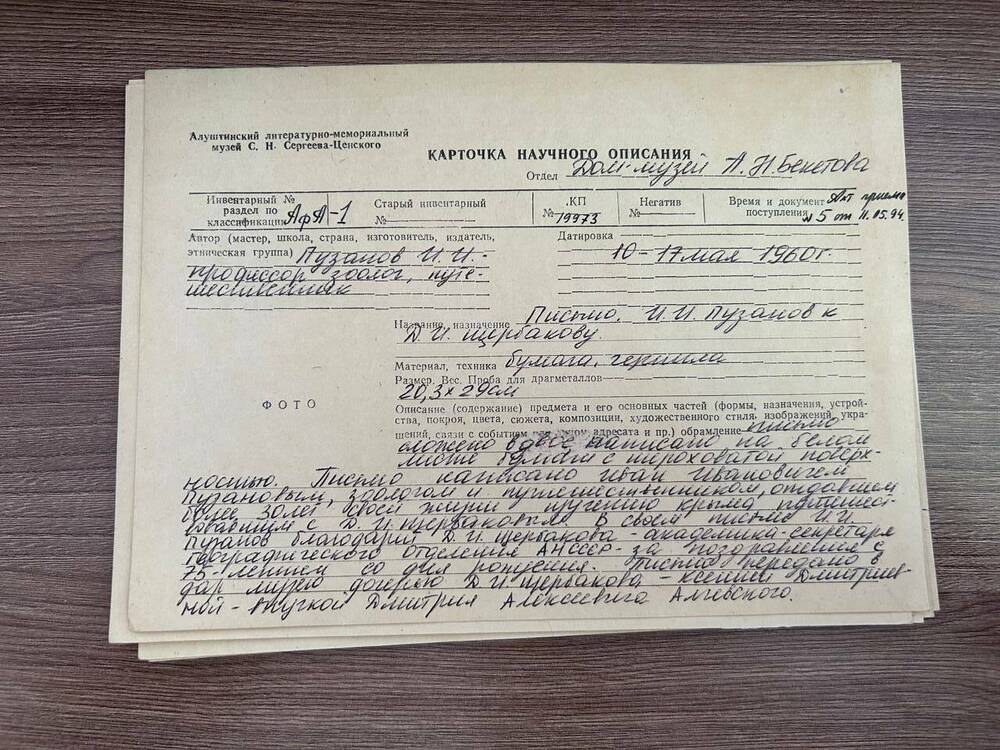 Алуштинский литературно-мемориальный
музей С. Н. Сергеева-Ценского
КАРТОЧКА НАУЧНОГО ОПИСАНИЯ
Отдел Дом-музей А.Н. Бекетова
Инвентарный № раздел по классификации АфА-1
Старый инвентарный №
КП № 19973
Негатив №
Время и документ поступления Акт приема № 5 от 11.05.94
Автор (мастер, школа, страна, изготовитель, издатель,
этническая группа) Пузанов И.И. -
профессор, зоолог, путе-
шественник
Датировка
10-17 мая 1960г.
Название, назначение Письмо. И.И. Пузанов к
Д.И. Щербакову.
Материал, техника бумага, чернила
Размер. Вес. Проба для драгметаллов
20,3 х 29см
ФОТО
Описание (содержание) предмета и его основных частей (формы, назначения, устрой-
ства, покроя, цвета, сюжета, композиции, художественного стиля, изображений, укра-
шений, связи с событием адресата и пр.) обрамление Письмо
сложено вдвое написано на белом
листе бумаги с шероховатой поверх-
ностью. Письмо написано Иван Ивановичем
Пузановым, зоологом и путешественником, отдавшем
более 30 лет своей жизни изучению Крыма,
с Д.И. Щербаковым. В своем письме И.И.
Пузанов благодарит Д.И. Щербакова - академика-секретаря
географического отделения АН СССР - за поздравления с
75-летием со дня рождения. Письмо передано в
дар музею дочерью Д.И. Щербакова - Ксенией Дмитриев-
ной - внучкой Дмитрия Алексеевича Алчевского.